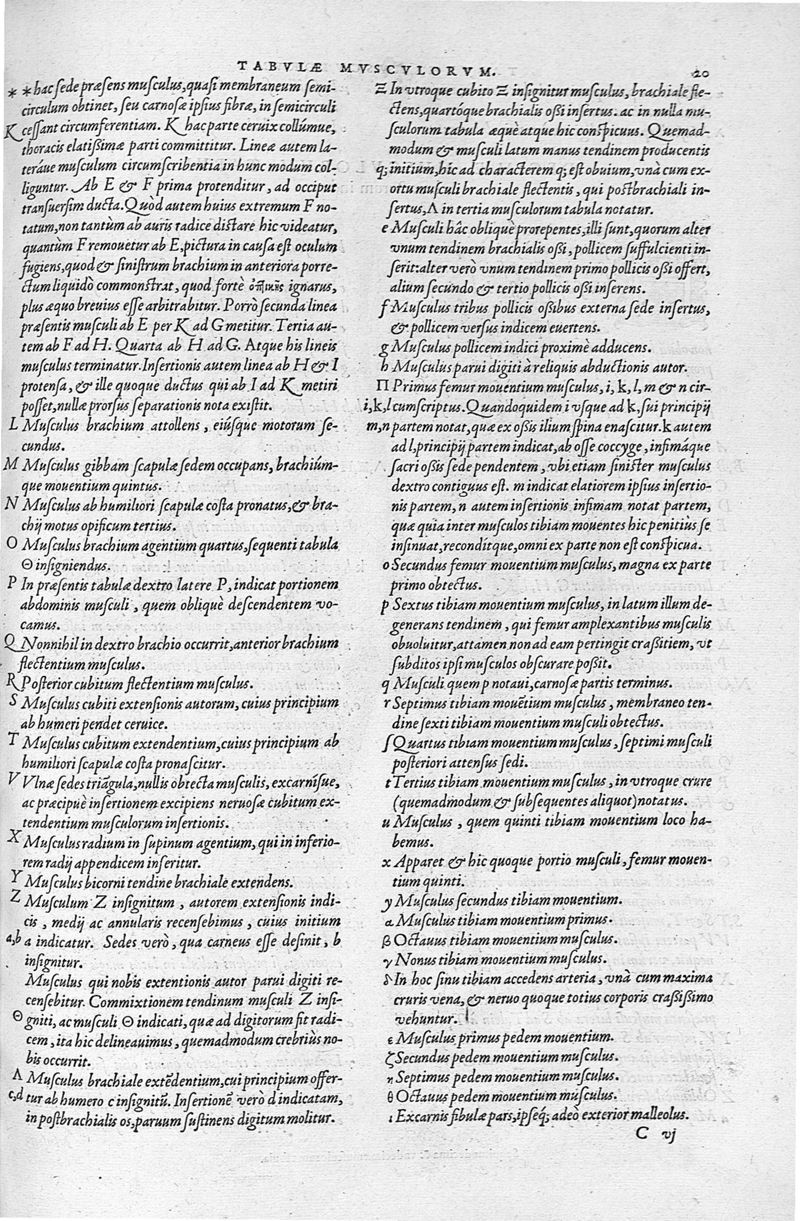 TABVLÆ MVSCVLORVM. 20
* * hac sede præsens musculus, quasi membraneum semi-
circulum obtinet, seu carnosæ ipsius fibræ, in semicirculi
K cessant circumferentiam. K hac parte ceruix collúmue,
thoracis elatißimæ parti committitur. Lineæ autem la-
teráue musculum circumscribentia in hunc modum col-
liguntur. Ab E & F prima protenditur, ad occiput
transuersim ducta. Quòd autem huius extremum F no-
tatum, non tantùm ab auris radice distare hic videatur,
quantùm F remouetur ab E, pictura in causa est oculum
fugiens, quod & sinistrum brachium in anteriora porre-
ctum liquidò commonstrat, quod fortè ignarus,
plus æquo breuius esse arbitrabitur. Porrò secunda linea
præsentis musculi ab E per K ad G metitur. Tertia au-
tem ab F ad H. Quarta ab H ad G. Atque his lineis
musculus terminatur. Insertionis autem linea ab H & I
protensa, & ille quoque ductus qui ab I ad K metiri
posset, nullæ prorsus separationis nota existit.
L Musculus brachium attollens, eiúsque motorum se-
cundus.
M Musculus gibbam scapulæ sedem occupans, brachiúm-
que mouentium quintus.
N Musculus ab humiliori scapulæ costa pronatus, & bra-
chij motus opificum tertius.
O Musculus brachium agentium quartus, sequenti tabula
Θ insigniendus.
P In præsentis tabulæ dextro latere P, indicat portionem
abdominis musculi, quem obliquè descendentem vo-
camus.
Q Nonnihil in dextro brachio occurrit, anterior brachium
flectentium musculus.
R Posterior cubitum flectentium musculus.
S Musculus cubiti extensionis autorum, cuius principium
ab humeri pendet ceruice.
T Musculus cubitum extendentium, cuius principium ab
humiliori scapulæ costa pronascitur.
V Vlnæ sedes triãgula, nullis obtecta musculis, excarnísue,
ac præcipuè insertionem excipiens neruosæ cubitum ex-
tendentium musculorum insertionis.
X Musculus radium in supinum agentium, qui in inferio-
rem radij appendicem inseritur.
Y Musculus bicorni tendine brachiale extendens.
Z Musculum Z insignitum, autorem extensionis indi-
cis, medij ac annularis recensebimus, cuius initium
a,b a indicatur. Sedes verò, qua carneus esse desinit, b
insignitur.
Musculus qui nobis extentionis autor parui digiti re-
censebitur. Commixtionem tendinum musculi Z insi-
Θ gniti, ac musculi Θ indicati, quæ ad digitorum fit radi-
cem, ita hic delineauimus, quemadmodum crebriùs no-
bis occurrit.
Λ Musculus brachiale extẽdentium, cui principium offer-
c,d tur ab humero c insignitũ. Insertionẽ verò d indicatam,
in postbrachialis os, paruum sustinens digitum molitur.
Ξ In vtroque cubito Ξ insignitur musculus, brachiale fle-
ctens, quartóque brachialis oßi insertus. ac in nulla mu-
sculorum tabula æquè atque hic conspicuus. Quemad-
modum & musculi latum manus tendinem producentis
q; initium, hic ad characterem q; est obuium, vnà cum ex-
ortu musculi brachiale flectentis, qui postbrachiali in-
sertus, Λ in tertia musculorum tabula notatur.
e Musculi hâc obliquè prorepentes, illi sunt, quorum alter
vnum tendinem brachialis oßi, pollicem suffulcienti in-
serit: alter verò vnum tendinem primo pollicis oßi offert,
alium secundo & tertio pollicis oßi inserens.
f Musculus tribus pollicis oßibus externa sede insertus,
& pollicem versus indicem euertens.
g Musculus pollicem indici proximè adducens.
h Musculus parui digiti à reliquis abductionis autor.
Π Primus femur mouentium musculus, i, k, l, m & n cir-
i,k,l cumscriptus. Quandoquidem i vsque ad k, sui principij
m,n partem notat, quæ ex oßis ilium spina enascitur. k autem
ad l, principij partem indicat, ab osse coccyge, infimáque
sacri oßis sede pendentem, vbi etiam sinister musculus
dextro contiguus est. m indicat elatiorem ipsius insertio-
nis partem, n autem insertionis infimam notat partem,
quæ quia inter musculos tibiam mouentes hic penitiùs se
insinuat, reconditque, omni ex parte non est conspicua.
o Secundus femur mouentium musculus, magna ex parte
primo obtectus.
p Sextus tibiam mouentium musculus, in latum illum de-
generans tendinem, qui femur amplexantibus musculis
obuoluitur, attamen non ad eam pertingit craßitiem, vt
subditos ipsi musculos obscurare poßit.
q Musculi quem p notaui, carnosæ partis terminus.
r Septimus tibiam mouẽtium musculus, membraneo ten-
dine sexti tibiam mouentium musculi obtectus.
ſ Quartus tibiam mouentium musculus, septimi musculi
posteriori attensus sedi.
t Tertius tibiam mouentium musculus, in vtroque crure
(quemadmodum & subsequentes aliquot) notatus.
u Musculus, quem quinti tibiam mouentium loco ha-
bemus.
x Apparet & hic quoque portio musculi, femur mouen-
tium quinti.
y Musculus secundus tibiam mouentium.
α Musculus tibiam mouentium primus.
β Octauus tibiam mouentium musculus.
γ Nonus tibiam mouentium musculus.
δ In hoc sinu tibiam accedens arteria, vnà cum maxima
cruris vena, & neruo quoque totius corporis craßißimo
vehuntur.
ε Musculus primus pedem mouentium.
ζ Secundus pedem mouentium musculus.
η Septimus pedem mouentium musculus.
θ Octauus pedem mouentium musculus.
ι Excarnis fibulæ pars, ipséq; adeò exterior malleolus.
C vj